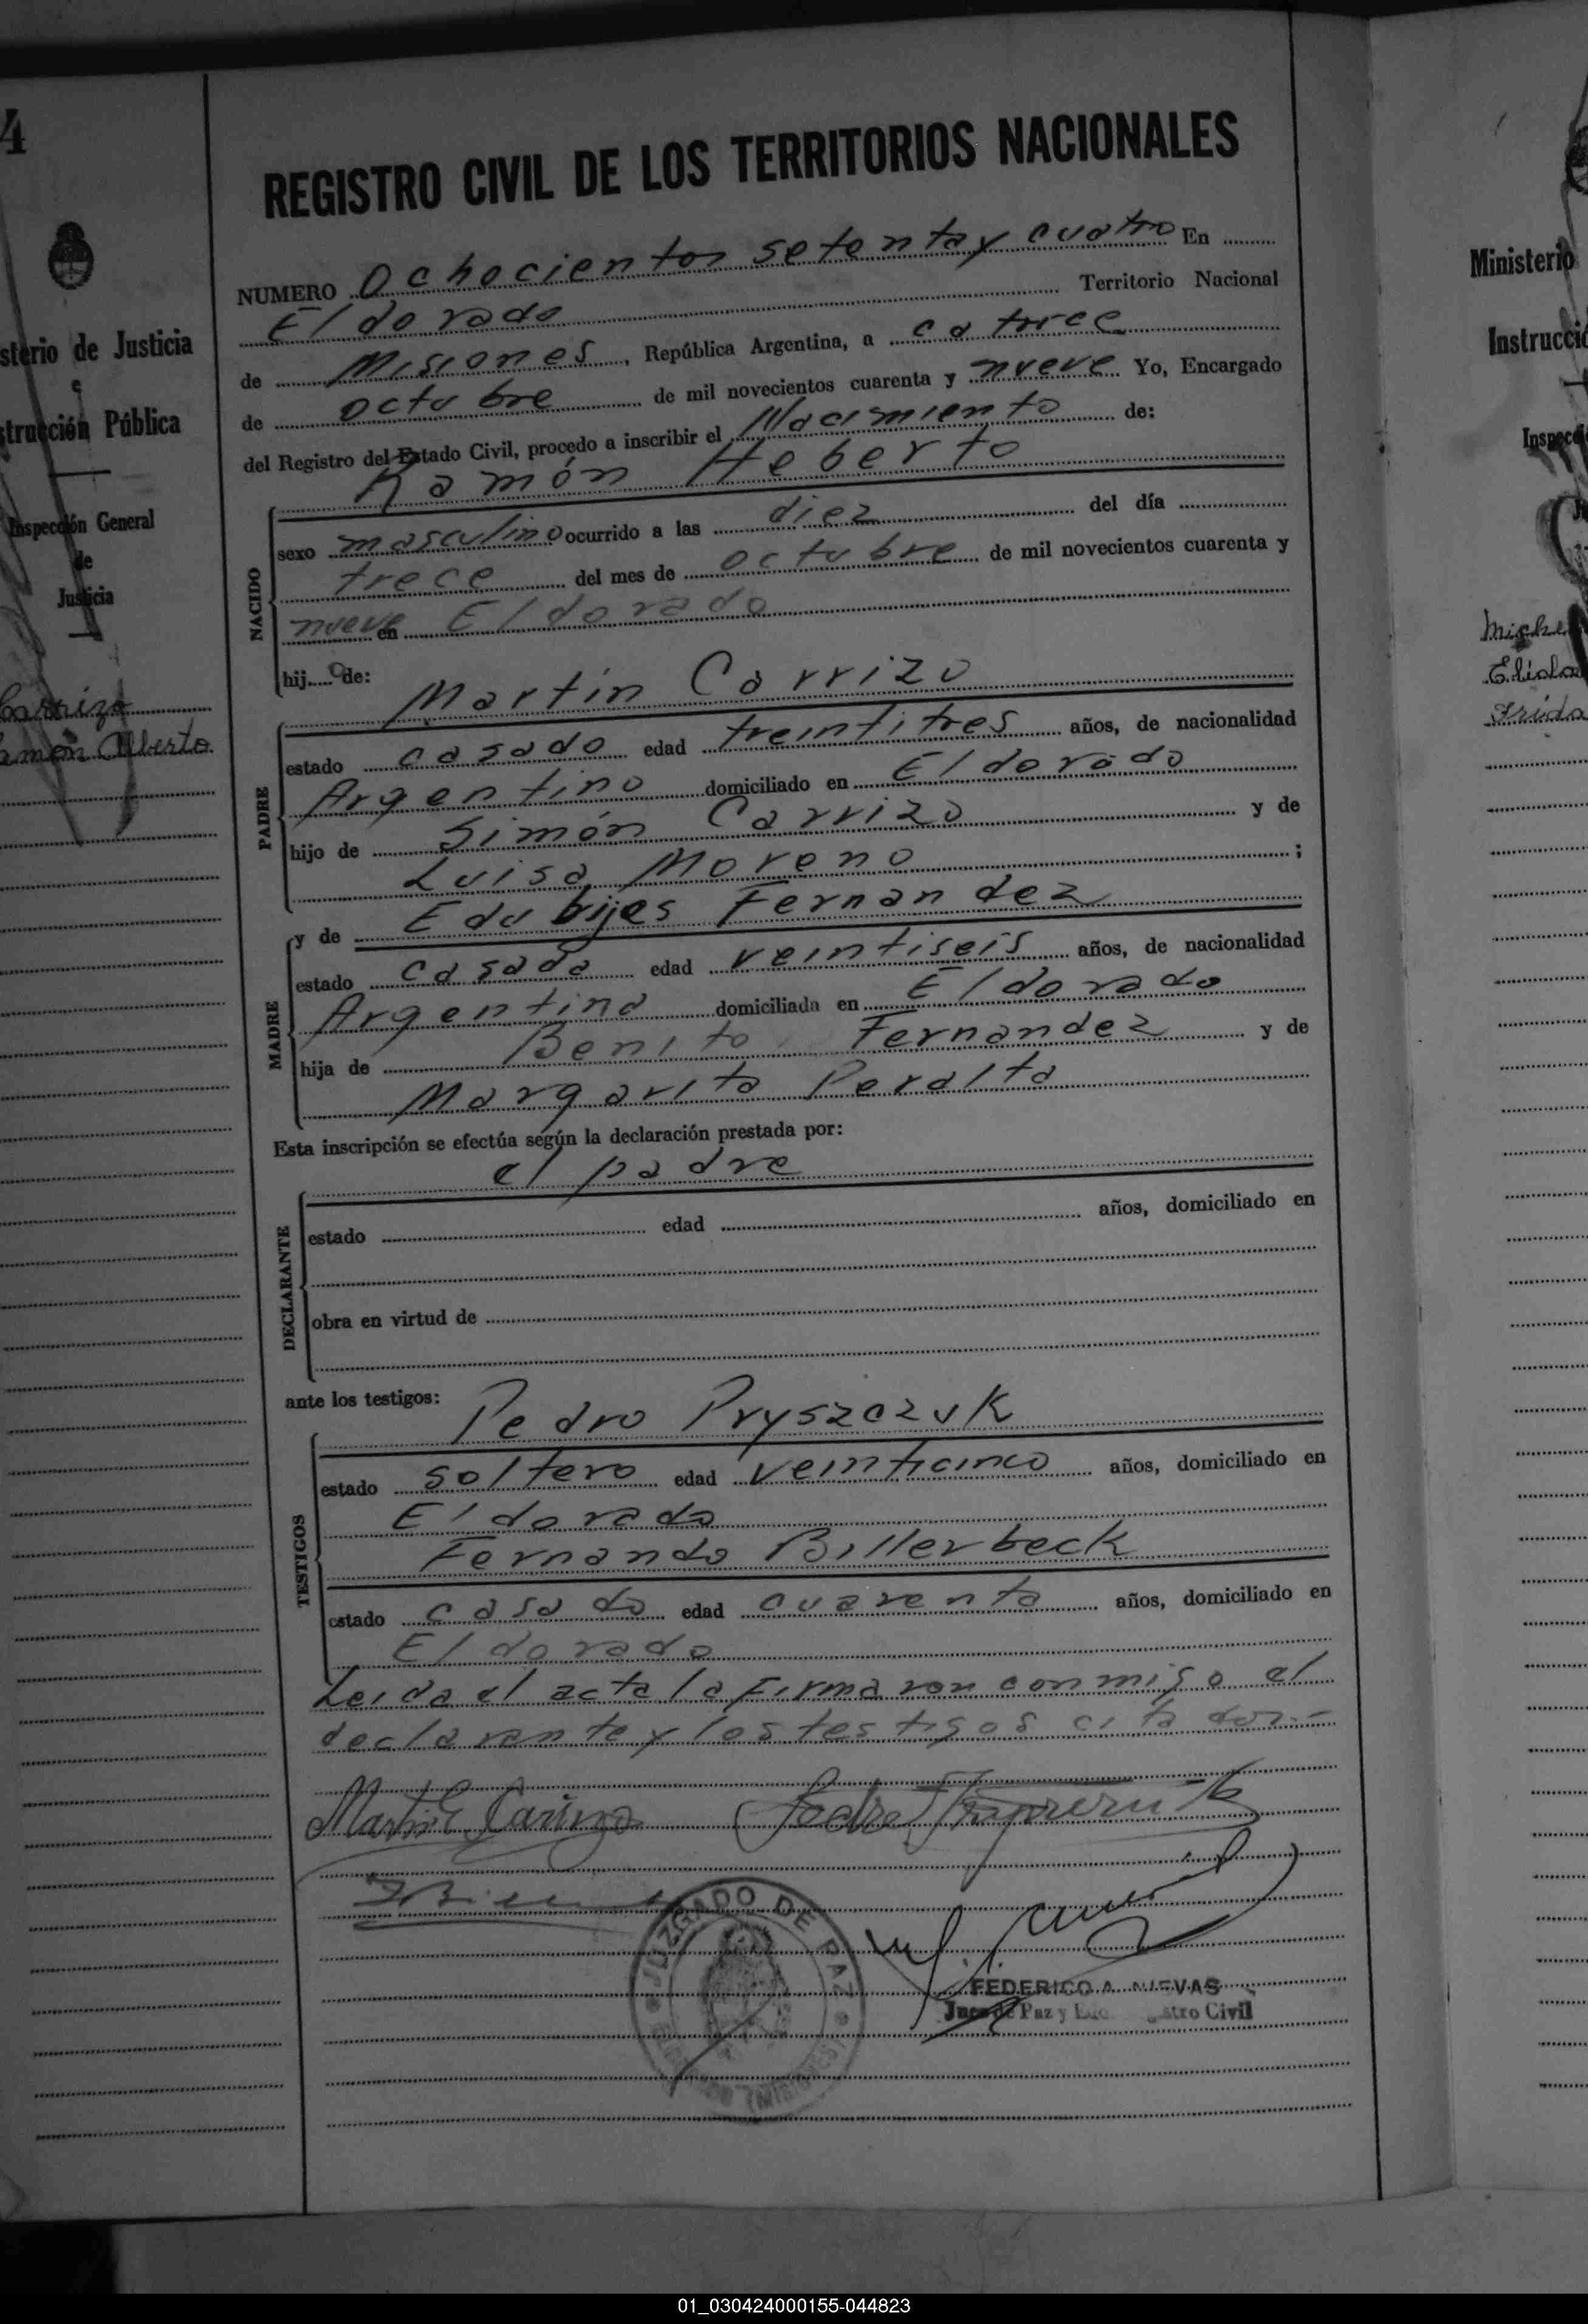 4
sterio de Justicia
e
strucción Pública
Inspección General
de
Justicia
Carrizo
amón Alberto
REGISTRO CIVIL DE LOS TERRITORIOS NACIONALES
NUMERO Ochocientos setenta y cuatro En
Eldorado Territorio Nacional
de Misiones, República Argentina, a catorce
de octubre de mil novecientos cuarenta y nueve Yo, Encargado
del Registro del Estado Civil, procedo a inscribir el Nacimiento de:
Ramón Heberto
NACIDO
sexo masculino ocurrido a las diez del día
trece del mes de octubre de mil novecientos cuarenta y
nueve en Eldorado
hijo de:
Martín Carrizo
PADRE
estado casado edad treintitres años, de nacionalidad
Argentino domiciliado en Eldorado
hijo de Simón Carrizo y de
Luisa Moreno ;
MADRE
y de Edubijes Fernandez
estado casada edad veintiseis años, de nacionalidad
Argentina domiciliada en Eldorado
hija de Benito Fernandez y de
Margarita Peralta
Esta inscripción se efectúa según la declaración prestada por:
el padre
DECLARANTE
estado edad años, domiciliado en
obra en virtud de
ante los testigos:
Pedro Pryszczuk
TESTIGOS
estado soltero edad veinticinco años, domiciliado en
Eldorado
Fernando Billerbeck
estado casado edad cuarenta años, domiciliado en
Eldorado
Leida el acta la firmaron conmigo el
declarante y los testigos citados.-
Martin Carrizo
Pedro
JUZGADO DE PAZ
FEDERICO A. NIEVAS
Juez de Paz y stro Civil
Ministerio
Instrucció
Inspecc
Elida
Frida
01_030424000155-044823